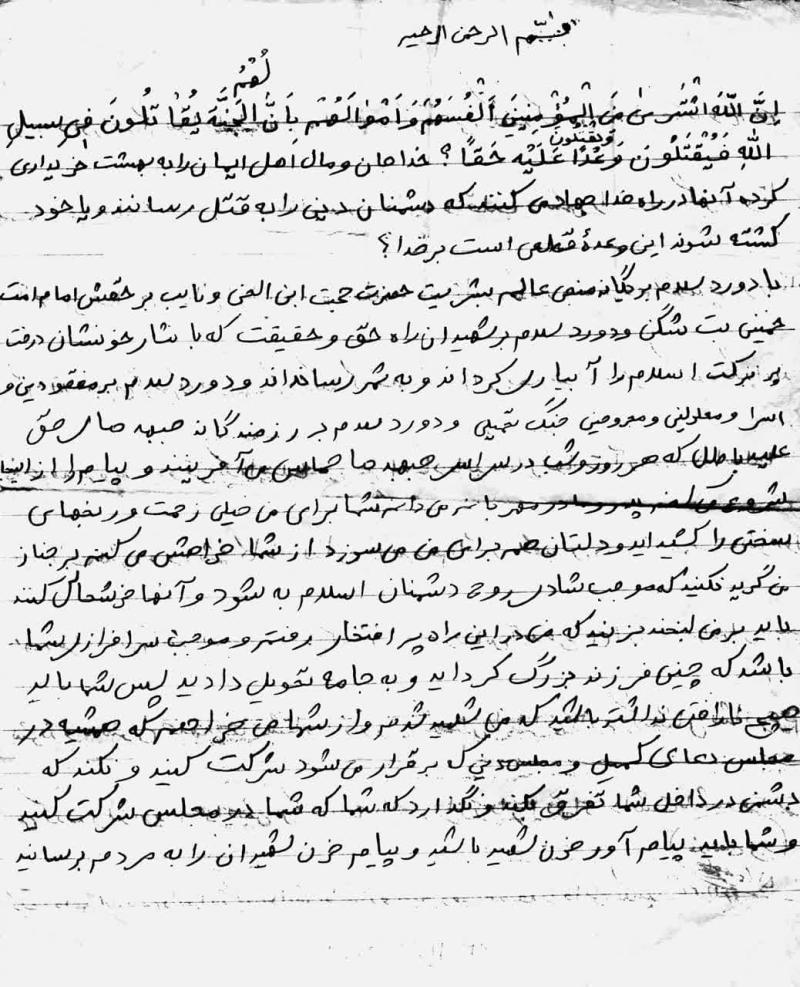 بسم الرحمن الرحیم
لَهُمُ
اِنَّ اللّهَ اشْتَرىٰ مِنَ الْمُؤْمِنِینَ اَنْفُسَهُمْ وَ اَمْوالَهُمْ بِاَنَّ الْجَنَّةَ یُقاٰتِلُونَ فی سبیلِ
وَیُقْتَلُونَ
اللّهِ فَیُقْتَلُونَ وَعْدًا عَلَیْهِ حَقاً؟ خدا جان و مال اهل ایمان را به بهشت خریداری
کرده آنها در راه خدا جهاد می کنند که دشمنان دین را به قتل رسانند و یا خود
کشته شوند این وعدهٔ قطعی است بر خدا؟
با درود سلام بر یگانه منجی عالم بشریت حضرت حجت ابن الحسن و نایب بر حقش امام امت
خمینی بت شکن و درود سلام بر شهیدان راه حق و حقیقت که با نثار خونشان درخت
پر برکت اسلام را آبیاری کرداند و به ثمر رسانداند و درود سلام بر مفقودین و
اسرا و معلولین و مجروحین جنگ تحمیلی و درود سلام بر رزمندگان جبهه های حق
علیه باطل که هر روز و شب در سراسر جبهه ها حماس می آفرینند و پیام را از اینجا
شروع می کنم پدر و مادر مهربانم می دانم شما برای من خیلی زحمت و رنجهای
سختی را کشیداید و دلتان هم برای من می سوزد از شما خواهش می کنم بر جناز
من گریه نکنید که موجب شادی روح دشمنان اسلام به شود و آنها خوشحالی کنند
باید بر من لبخند بزنید که من در این راه پر افتخار رفتم و موجب سرافرازی شما
باشد که چنین فرزند بزرگ کرداید و به جامعه تحویل دادید پس شما باید
هیچ ناراحتی نداشته باشید که من شهید شدم و از شما می خواهم که همیشه در
مجلس دعای کمیل و مجلس دیگر که برقرار می شود شرکت کنید و نکند که
دشمن در داخل شما تفرقه بکند و نگذارد که شما که شما در مجلس شرکت کنید
و شما باید پیام آور خون شهید باشید و پیام خون شهیدان را به مردم برسانید